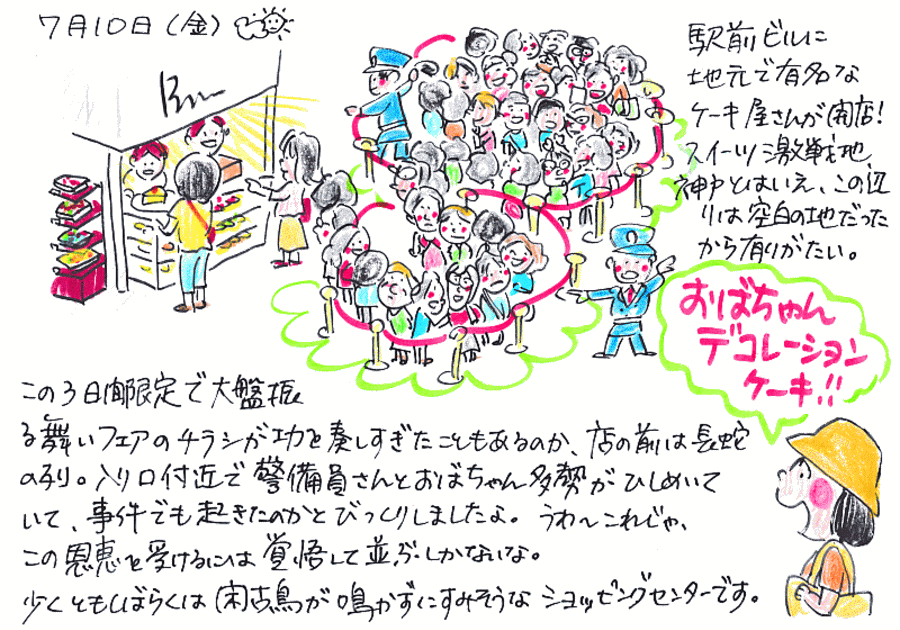 7月10日（金）
駅前ビルに
地元で有名な
ケーキ屋さんが開店！
スイーツ激戦地、
神戸とはいえ、この辺
りは空白の地だった
から有りがたい。
おばちゃん
デコレーション
ケーキ！！
この3日間限定で大盤振
る舞いフェアのチラシが功を奏しすぎたこともあるのか、店の前は長蛇
の列。入り口付近で警備員さんとおばちゃん多勢がひしめいて
いて、事件でも起きたのかとびっくりしましたよ。うわ〜これじゃ、
この恩恵を受けるには覚悟して並ぶしかないな。
少くともしばらくは閑古鳥が鳴かずにすみそうなショッピングセンターです。